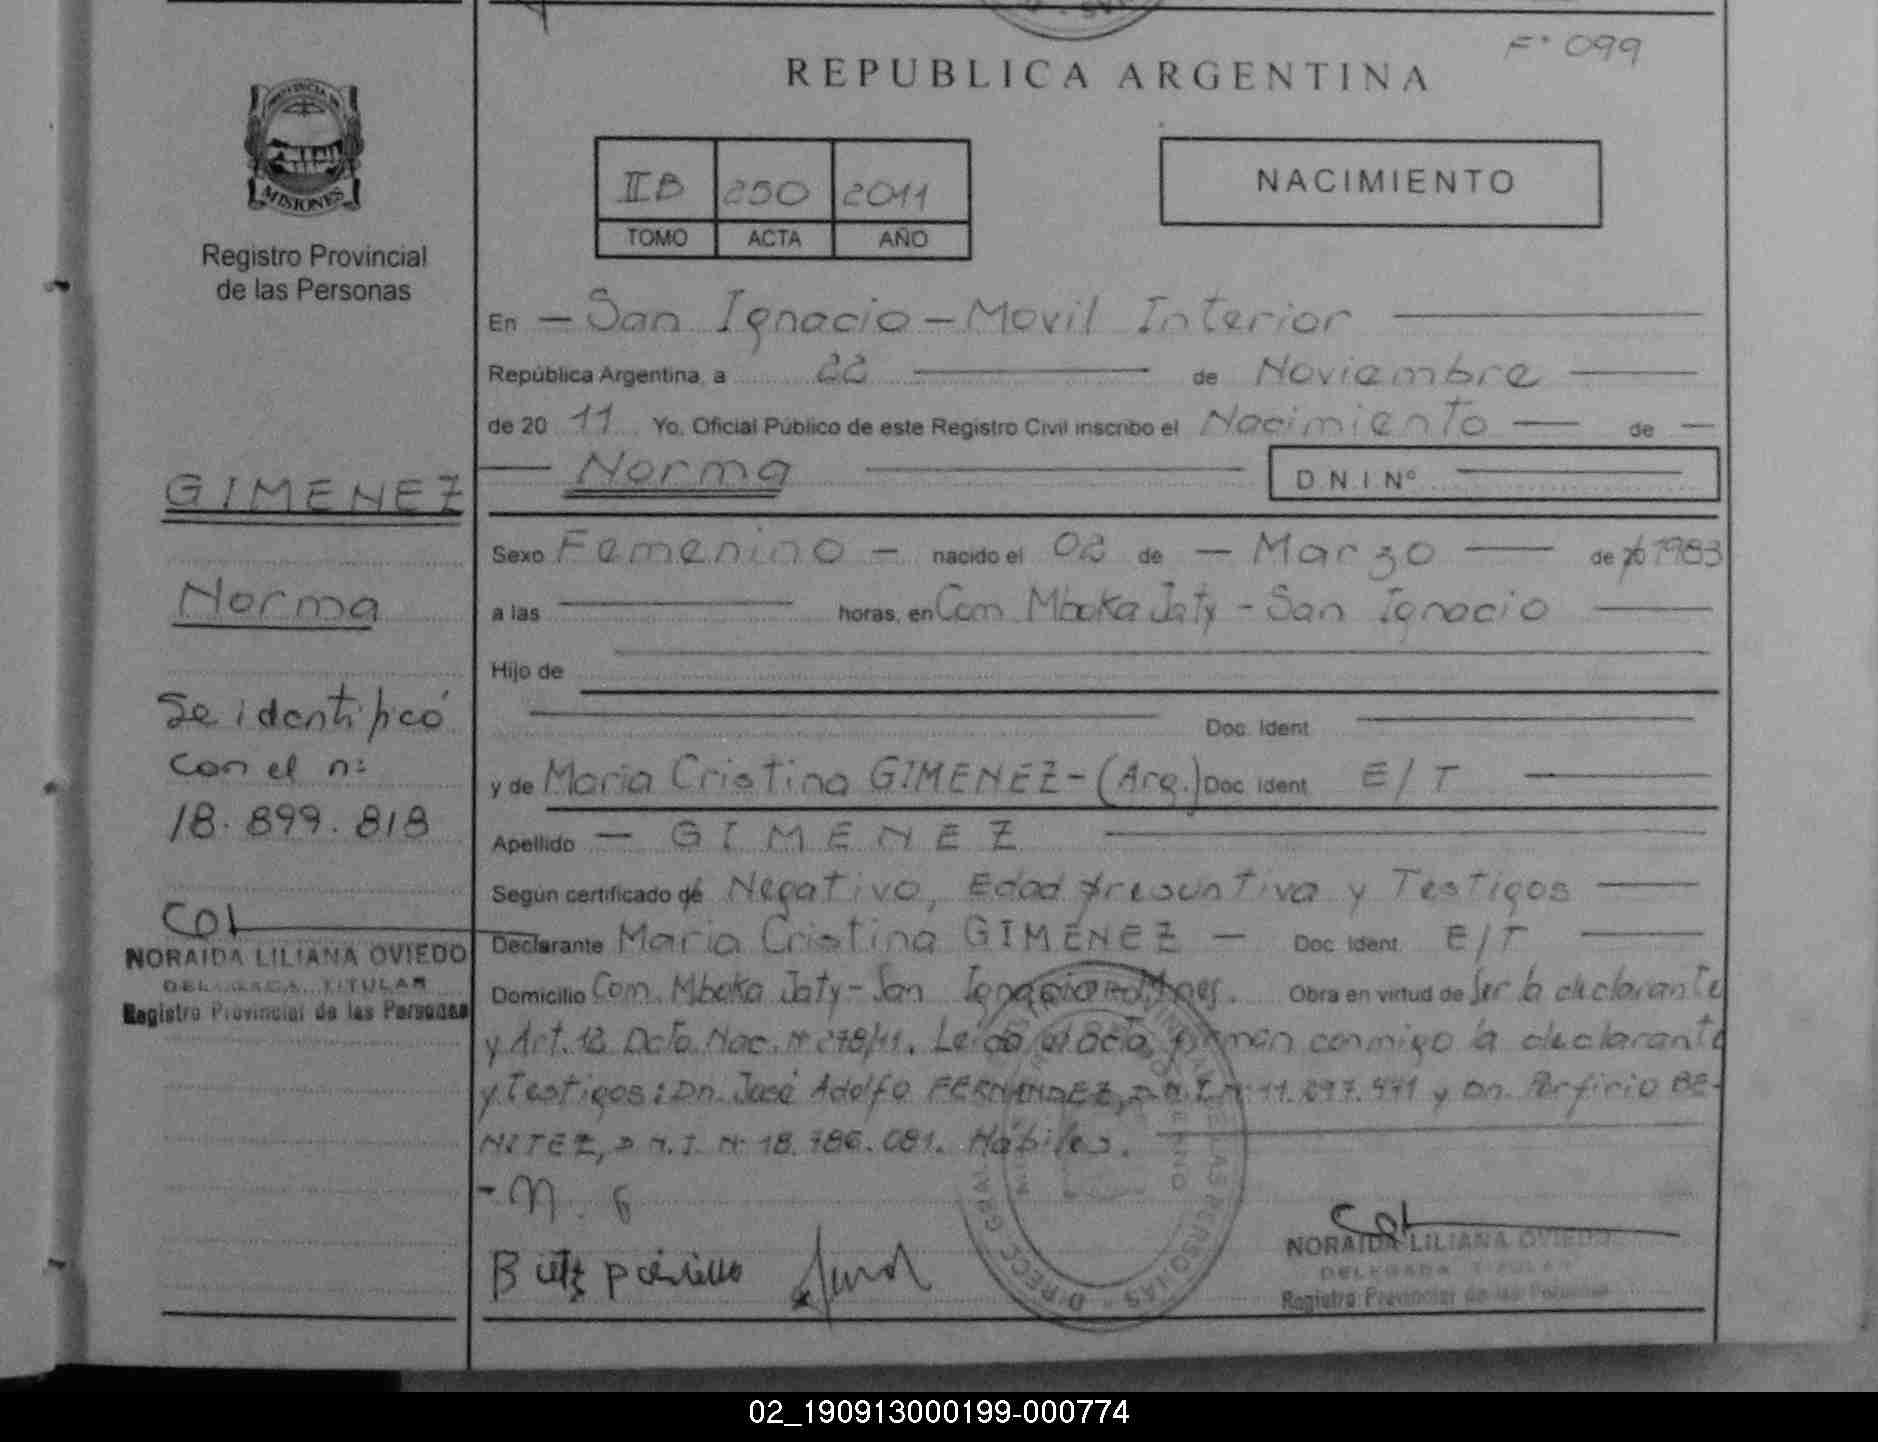 F° 099
REPUBLICA ARGENTINA
PROVINCIA DE
MISIONES
Registro Provincial
de las Personas
IIB 250 2011
TOMO ACTA AÑO
NACIMIENTO
En — San Ignacio - Movil Interior
República Argentina, a 22 de Noviembre
de 20 11 Yo, Oficial Público de este Registro Civil inscribo el Nacimiento — de —
Norma D.N.I.Nº
GIMENEZ
Norma
Se identificó
con el n:
18.899.818
NORAIDA LILIANA OVIEDO
DELEGADA TITULAR
Registro Provincial de las Personas
Sexo Femenino — nacido el 02 de — Marzo — de 1983
a las horas, en Com. Mboka Jaty - San Ignacio
Hijo de
Doc. Ident.
y de Maria Cristina GIMENEZ - (Arg.) Doc. Ident. E/T
Apellido — GIMENEZ
Según certificado de Negativo, Edad presuntiva y Testigos
Declarante Maria Cristina GIMENEZ — Doc. Ident. E/T
Domicilio Com. Mboka Jaty - San Ignacio Obra en virtud de Ser la declarante
y Art. 12 Dcto. Nac. Nº 278/11. Leida el acta, firman conmigo la declarante
y Testigos: Dn. José Adolfo FERNANDEZ, D.N.I. Nº 11.697.441 y Dn. Porfirio BE-
NITEZ, D.N.I. Nº 18.786.081. Hábiles.
- M. G
NORAIDA LILIANA OVIEDO
DELEGADA TITULAR
Registro Provincial de las Personas
02_190913000199-000774